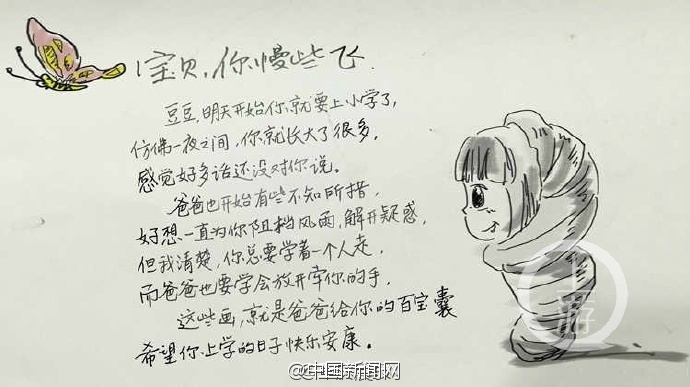 宝贝，你慢些飞.
豆豆，明天开始你就要上小学了，
仿佛一夜之间，你就长大了很多，
感觉好多话还没对你说。
爸爸也开始有些不知所措，
好想一直为你阻挡风雨，解开疑惑，
但我清楚，你总要学着一个人走，
而爸爸也要学会放开牵你的手，
这些画，就是爸爸给你的百宝囊
希望你上学的日子快乐安康。
上游
@中国新闻网